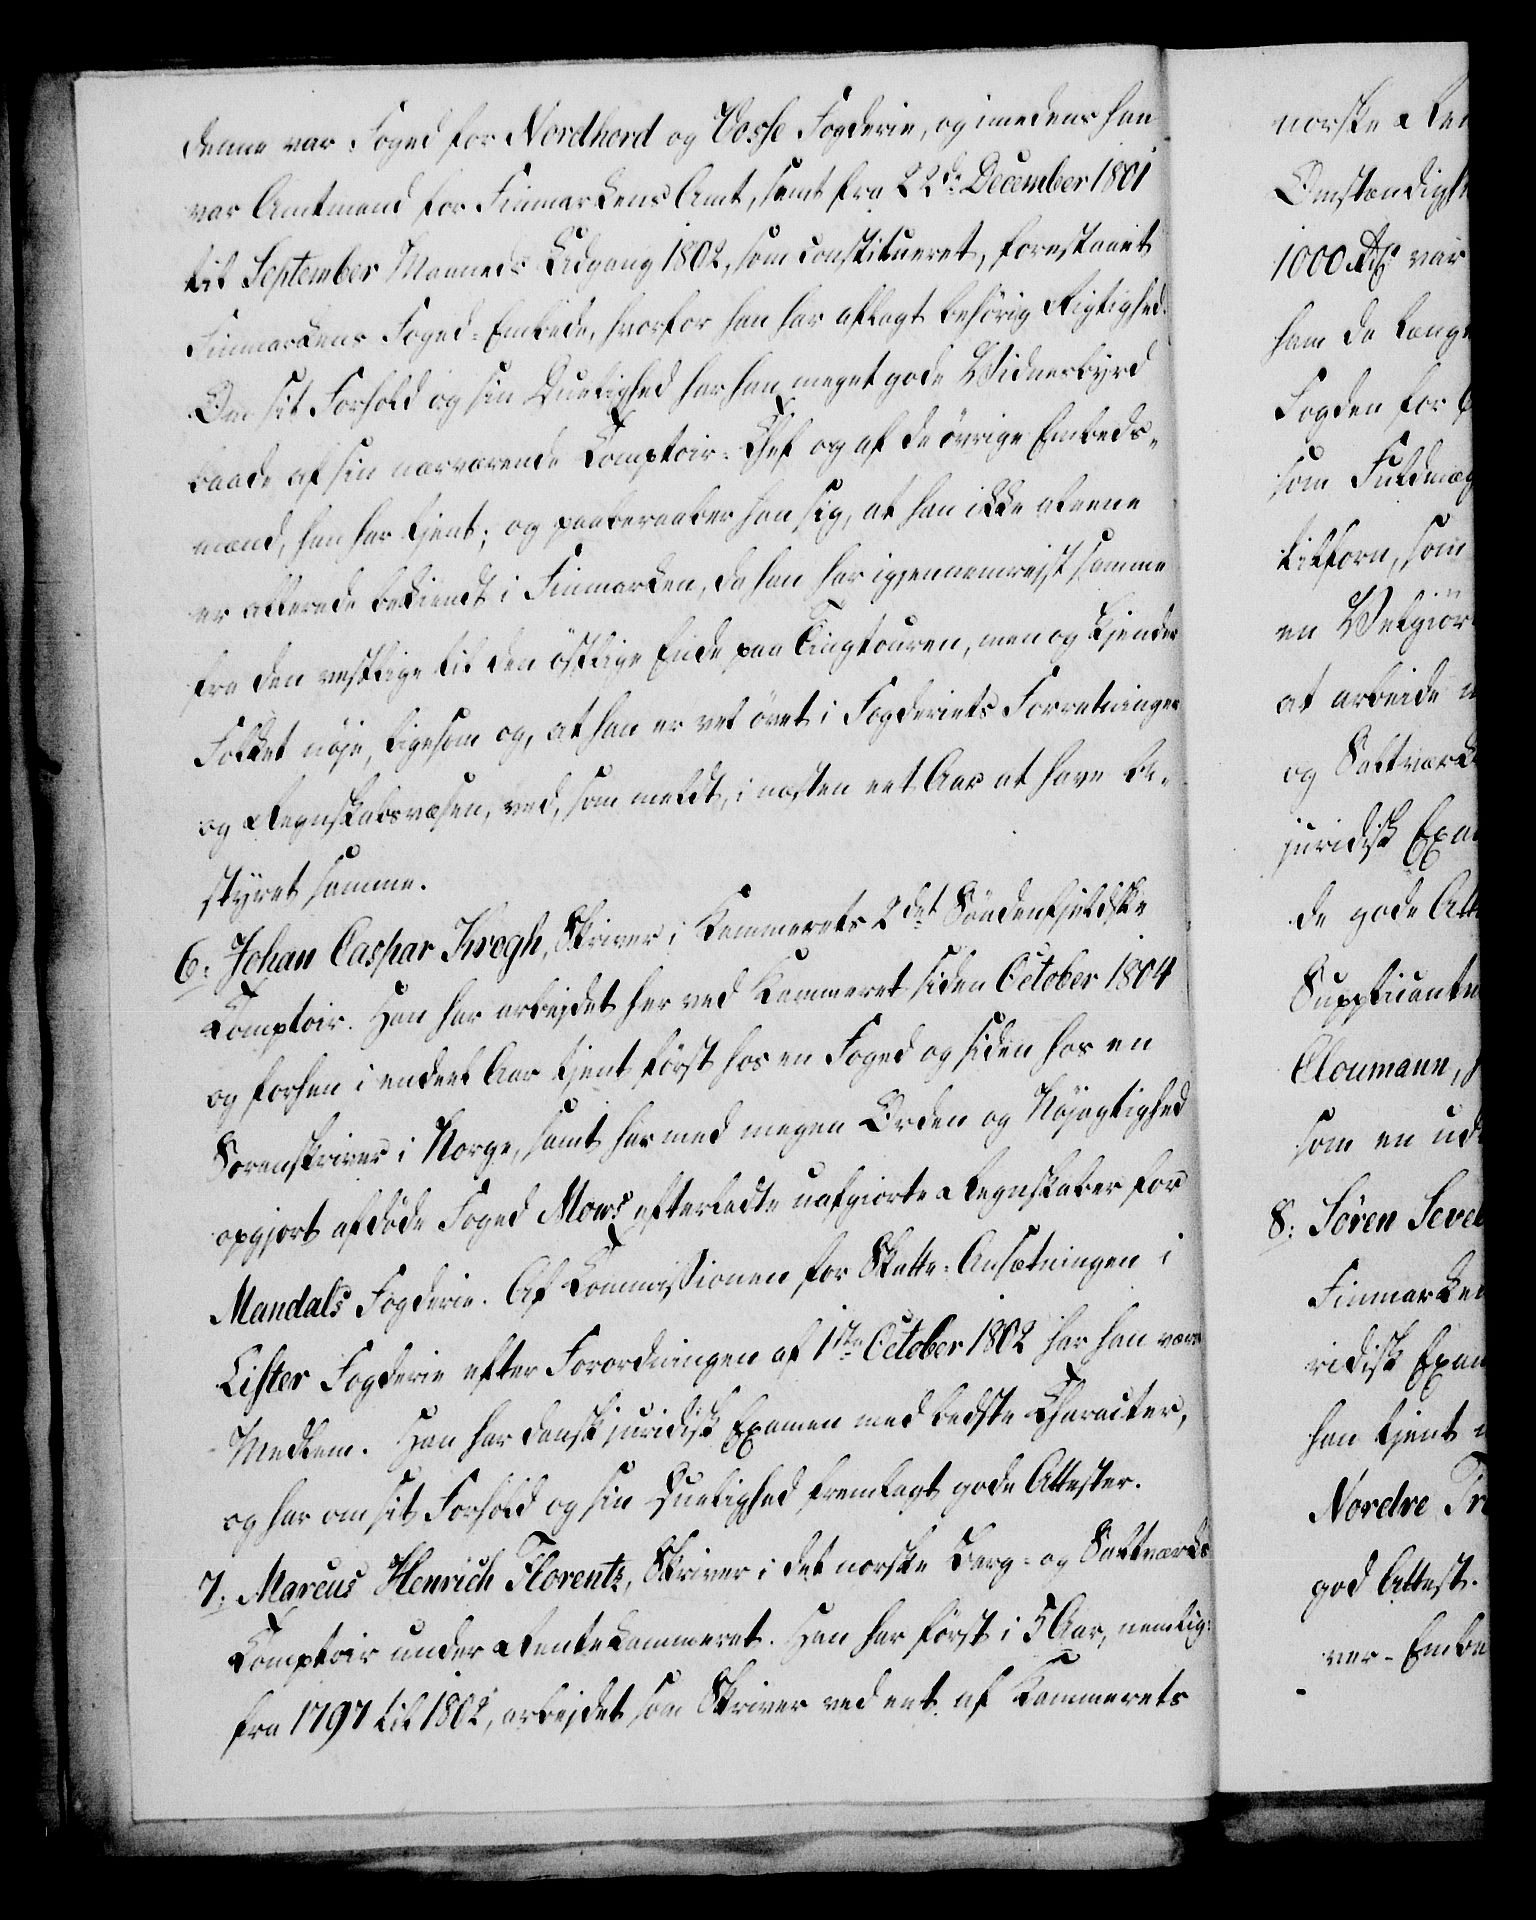 denne var Foged for Nordhord og Vosse Fogderie, og imedens han
var Amtmand for Finmarkens Amt, samt fra 22de December 1801
til September Maaneds Udgang 1802, som constitueret, forestaaet
Finmarkens Foged-Embede, hvorfor han har aflagt behörig Rigtighed.
Om sit Forhold og sin Duelighed har han meget gode Vidnesbyrd
baade af sin nærværende Comptoir-Chef og af de övrige Embeds-
mænd, han har tjent; og paaberaaber han sig, at han ikke alleene
er allerede bekiendt i Finmarken, da han har igjennemrejst samme
fra den vestlige til den östlige Ende paa Tingtouren, men og kjender
Folket nöje, ligesom og, at han er vel övet i Fogderiets Forretninger
og Regnskabsvæsen, ved, som meldt, i næsten eet Aar at have be-
styret samme.
6. Johan Caspar Krogh, Skriver i Kammerets 2det Söndenfjeldske
Comptoir. Han har arbejdet her ved Kammeret siden October 1804
og forhen i endeel Aar tjent först hos en Foged og siden hos en
Sorenskriver i Norge, samt har med megen Orden og Nöjagtighed
opgjort afdöde Foged Mows efterladte uafgiorte Regnskaber for
Mandals Fogderie. Af Commissionen for Skatte-Ansætningen i
Lister Fogderie efter Forordningen af 1ste October 1802 har han været
Medlem. Han har dansk juridisk Examen med bedste Character,
og har om sit Forhold og sin Duelighed fremlagt gode Attester.
7. Marcus Henrich Florentz, Skriver i det norske Berg- og Saltværks
Comptoir under Rentekammeret. Han har först i 5 Aar, nemlig:
fra 1797 til 1802, arbejdet som Skriver ved eet af Kammerets
norske Ren
Omstændigh
1000 Rdl var
ham de længe
Fogden for
som Fuldmæg
tilforn, som
en Velgiör
at arbeide
og Saltværk
juridisk Exam
de gode Att
Supplicante
Cloumann,
som en ud
8. Sören Seve
Finmarken
ridisk Exam
han tjent
Nordre Tr
god Attest.
ver-Embe